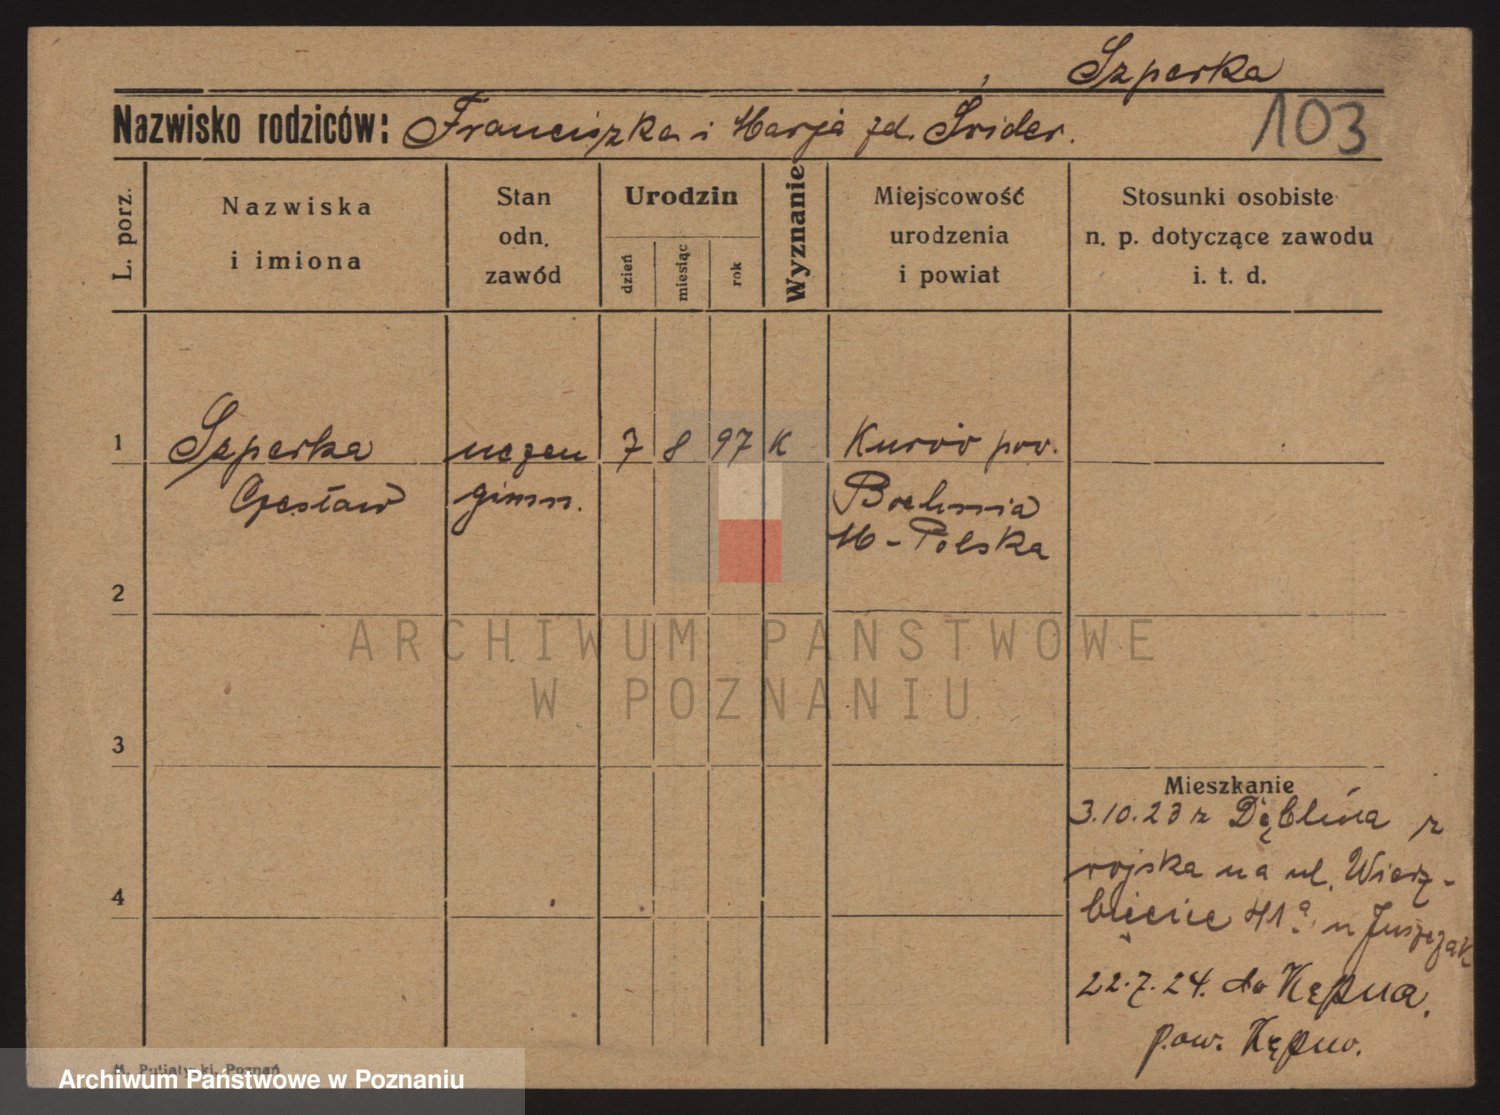 Szperka
Nazwisko rodziców: Franciszka i Marja zd. Śrider.
103
L. porz.
Nazwiska
i imiona
Stan
odn.
zawód
Urodzin
dzień
miesiąc
rok
Wyznanie
Miejscowość
urodzenia
i powiat
Stosunki osobiste
n. p. dotyczące zawodu
i. t. d.
1 Szperka uczeń 7 8 97 K Kurów pow.
Czesław gimn. Bochnia
M-Polska
2
ARCHIWUM PAŃSTWOWE
W POZNANIU
3
Mieszkanie
3.10.23 z Dęblina z
wojska na ul. Wierz-
4
bięcice 41a u Juszczak
22.7.24. do Kępna.
pow. Kępno.
Poznań
Archiwum Państwowe w Poznaniu